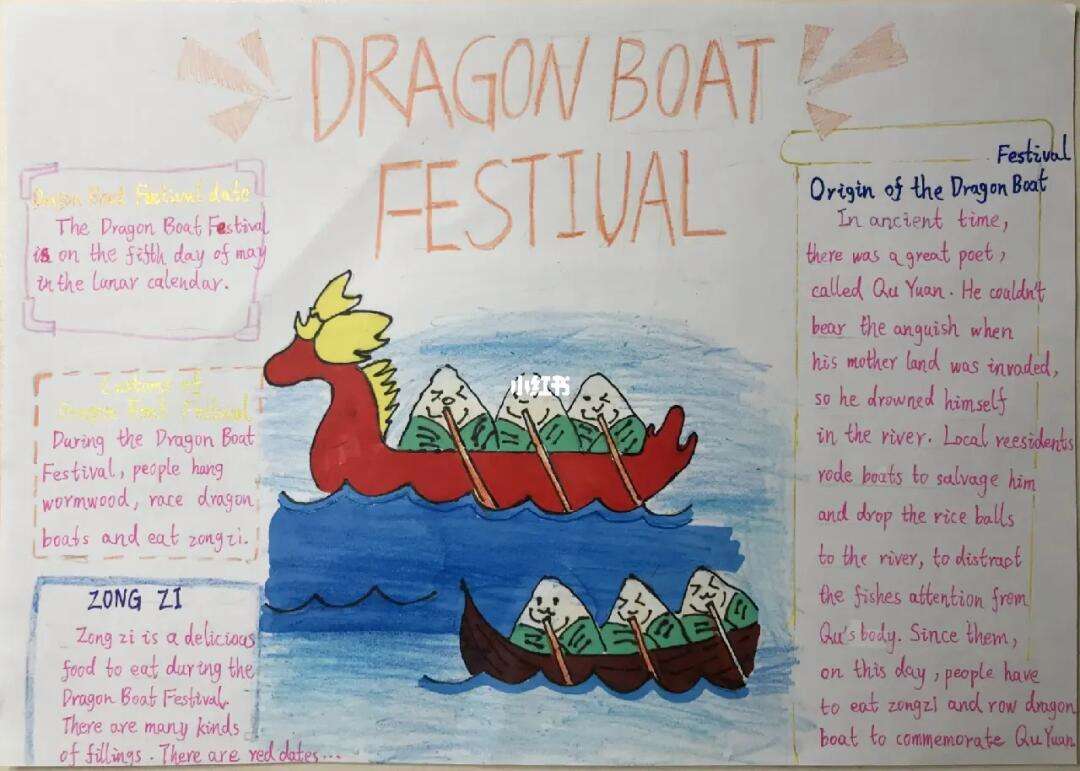 DRAGON BOAT
FESTIVAL
小红书
Dragon Boat Festival date
The Dragon Boat Festival
is on the fifth day of may
in the lunar calendar.
Customs of
Dragon Boat Festival
During the Dragon Boat
Festival, people hang
wormwood, race dragon
boats and eat zongzi.
ZONG ZI
Zong zi is a delicious
food to eat during the
Dragon Boat Festival.
There are many kinds
of fillings. There are red dates...
Festival
Origin of the Dragon Boat
In ancient time,
there was a great poet,
called Qu Yuan. He couldn't
bear the anguish when
his mother land was invaded,
so he drowned himself
in the river. Local reesidents
rode boats to salvage him
and drop the rice balls
to the river, to distract
the fishes attention from
Qu's body. Since them,
on this day, people have
to eat zongzi and row dragon
boat to commemorate Qu Yuan